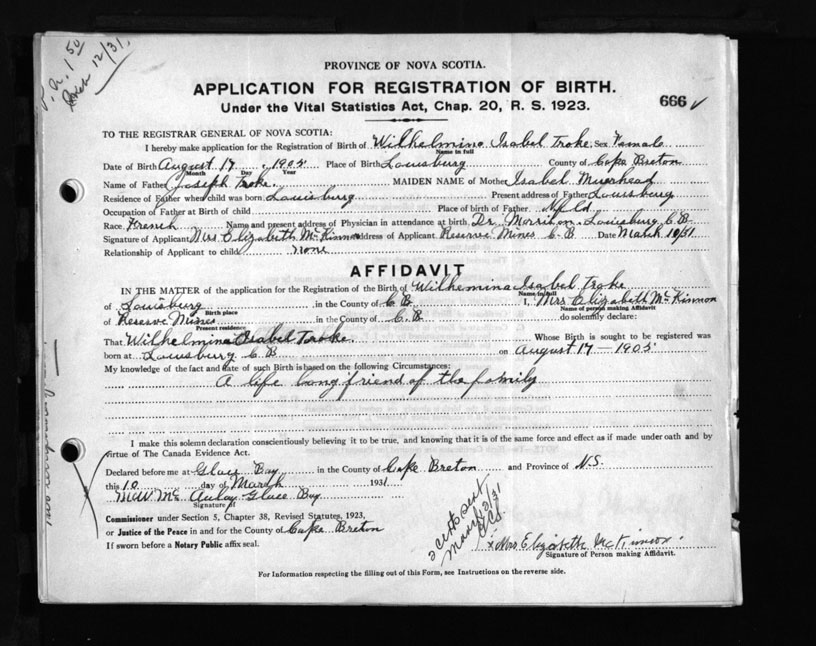 1.50
12/31
PROVINCE OF NOVA SCOTIA.
APPLICATION FOR REGISTRATION OF BIRTH.
Under the Vital Statistics Act, Chap. 20, R. S. 1923.
666
TO THE REGISTRAR GENERAL OF NOVA SCOTIA:
I hereby make application for the Registration of Birth of Wilhelmina Isabel Troke, Sex Female
Name in full
Date of Birth August 17, 1905 Place of Birth Louisburg County of Cape Breton
Month Day Year
Name of Father Joseph Troke. MAIDEN NAME of Mother Isabel Muirhead
Residence of Father when child was born Louisburg Present address of Father Louisburg
Occupation of Father at Birth of child Place of birth of Father. Nfld
Race French Name and present address of Physician in attendance at birth Dr Morrison Louisburg C.B
Signature of Applicant Mrs Elizabeth McKinnon Address of Applicant Reserve Mines C B Date March 10/31
Relationship of Applicant to child none
AFFIDAVIT
IN THE MATTER of the application for the Registration of the Birth of Wilhemina Isabel Troke
Name in full
of Louisburg in the County of C B I, Mrs Elizabeth McKinnon
Birth place Name of person making Affidavit
of Reserve Mines in the County of C. B do solemnly declare:
Present residence
That Wilhelmina Isabel Troke. Whose Birth is sought to be registered was
born at Louisburg C B on August 17 - 1905
My knowledge of the fact and date of such Birth is based on the following Circumstances:
A life long friend of the family
I make this solemn declaration conscientiously believing it to be true, and knowing that it is of the same force and effect as if made under oath and by
virtue of The Canada Evidence Act.
Declared before me at Glace Bay in the County of Cape Breton and Province of N.S.
this 10 day of March 1931
McAulay Glace Bay
Signature of
Commissioner under Section 5, Chapter 38, Revised Statutes, 1923
or Justice of the Peace in and for the County of Cape Breton
If sworn before a Notary Public affix seal.
2 certs sent
x Mrs Elizabeth McKinnon
Signature of Person making Affidavit.
For Information respecting the filling out of this Form, see Instructions on the reverse side.